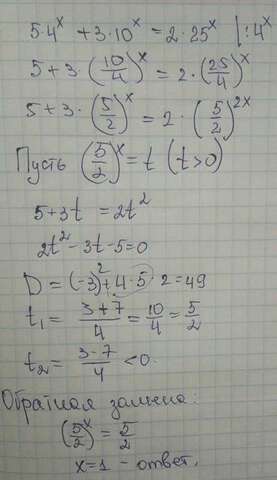 5·4^x + 3·10^x = 2·25^x |:4^x
5+3·(10/4)^x = 2·(25/4)^x
5+3·(5/2)^x = 2·(5/2)^{2x}
Пусть (5/2)^x = t (t>0)
5+3t = 2t²
2t² - 3t - 5 = 0
D = (-3)² + 4·5·2 = 49
t₁ = (3+7)/4 = 10/4 = 5/2
t₂ = (3-7)/4 < 0.
Обратная замена:
(5/2)^x = 5/2
x=1 - ответ.